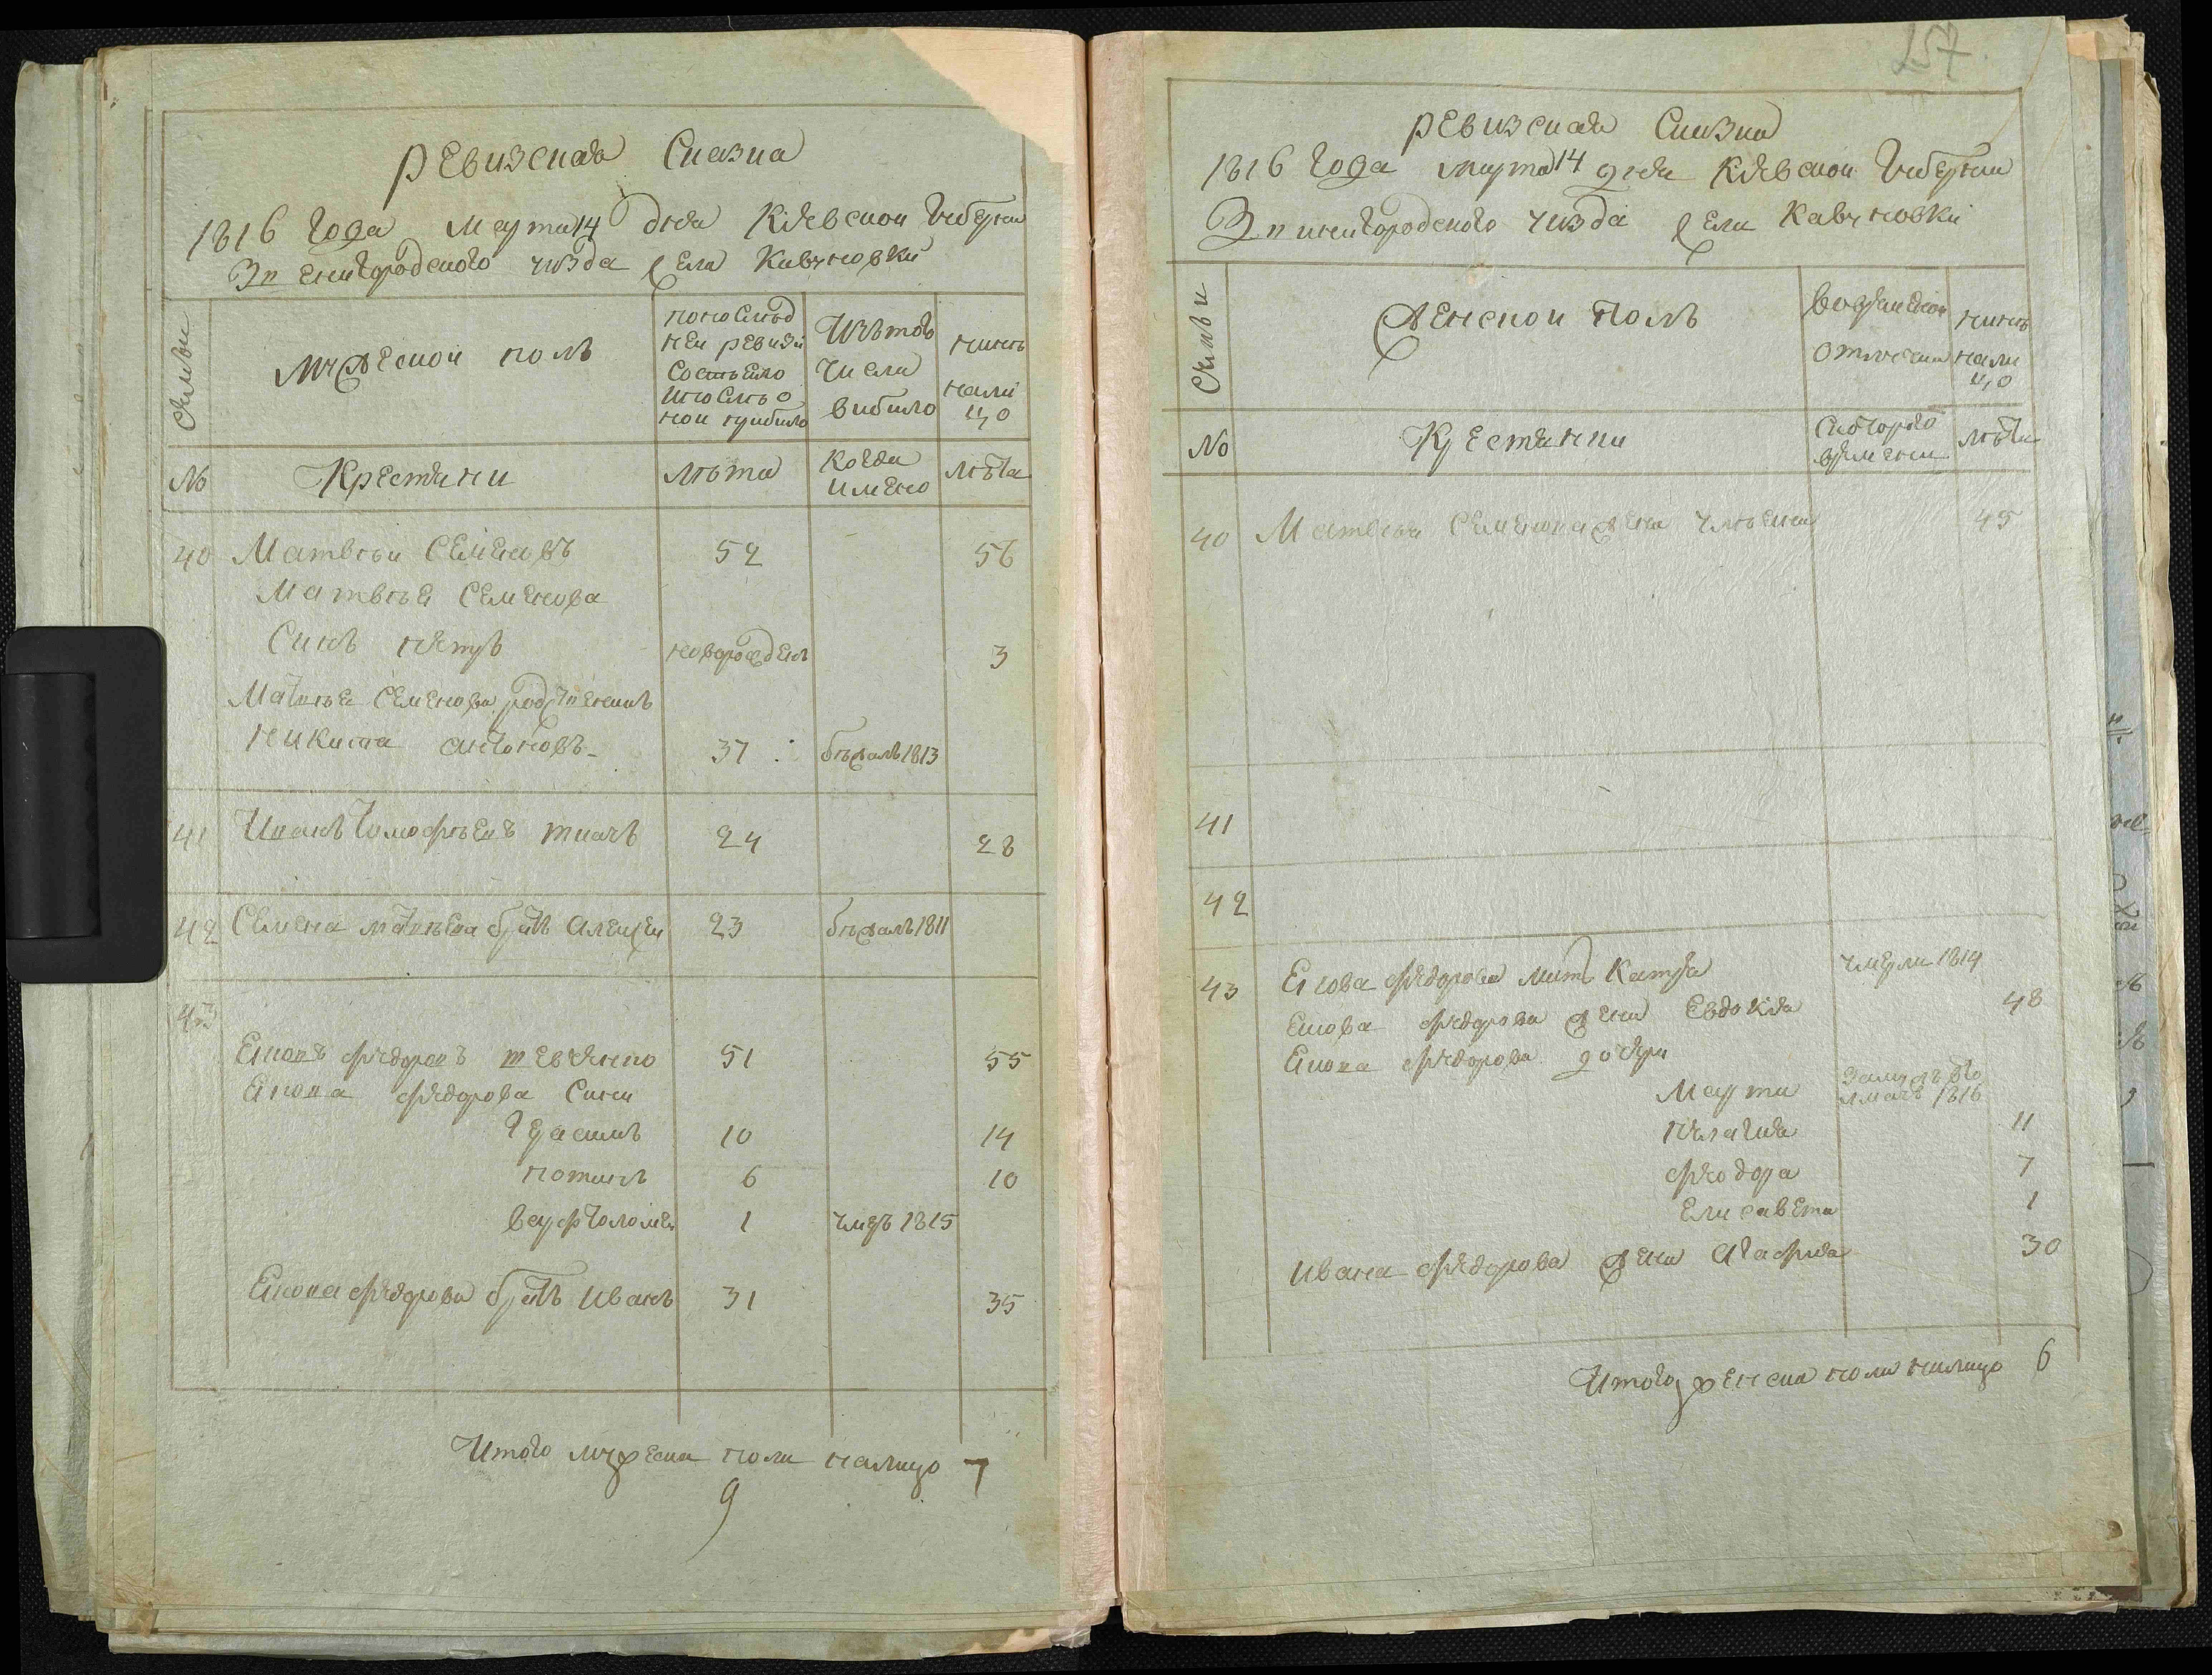 ревизская Сказка
1816 года марта 14 дня Киевской Губернии
Звенигородского уизда села Кавуновки
Семьи
мужеской полъ
по послед
ней ревизи
состояло
и после о
ной прибыло
Изътого
числа
выбыло
нынѣ
нали
цо
№
Крестяни
лѣта
Когда
имено
лѣта
40 Матвѣй Семеновъ 52 56
Матвѣя Семенова
Синъ петръ новорожденъ 3
Матвѣя Семенова родственикъ
Никита антоновъ 37 бѣжалъ 1813
41 Иванъ тимофѣевъ ткачъ 24 28
42 Семена матвѣева братъ алексей 23 бѣжалъ 1811
43
Яковъ федоровъ 51 55
Якова федорова Сини
Герасимъ 10 14
потапъ 6 10
варфоломей 1 умеръ 1815
Якова федорова братъ Иванъ 31 35
Итого мужеска пола налицо 7
9
257
ревизская Сказка
1816 года марта 14 дня Киевской Губернии
Звенигородского уизда села Кавуновки
Семьи
Женской полъ
вовременной
отлучки
нынѣ
нали
цо
№
Крестянки
Скоторого
времени
лѣта
40 Матвѣя Семенова жена улѣяна 45
41
42
43 Якова федорова мать Катря умерла 1814
Якова федорова жена Евдокия 48
Якова федорова дочери
Марта 1816
пелагия 11
феодора 7
Елисавета 1
Ивана федорова жена Агафия 30
Итого женска пола налицо 6